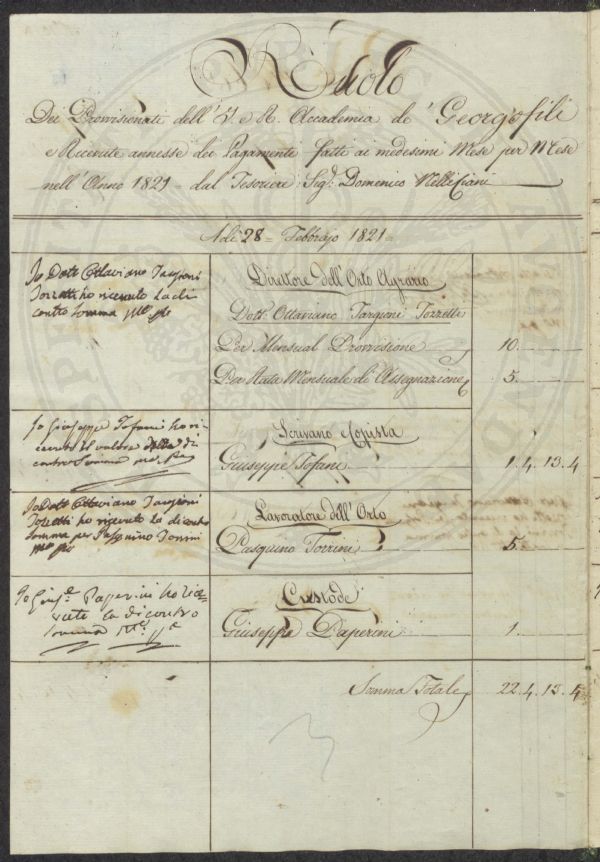 Ruolo
Dei Provisionati dell' I. e R. Accademia de' Georgofili
e Ricevute annesse dei Pagamenti fatti ai medesimi Mese per Mese
nell' Anno 1821 = dal Tesoriere Sigr. Domenico
Adi 28 = Febbrajo 1821 =
Io Dott Ottaviano Targioni
Tozzetti ho ricevuto la di
contro somma
Direttore dell' Orto Agrario
Dott. Ottaviano Targioni Tozzetti
Per Mensual Provvisione
10.
Per Rata Mensuale di Assegnazione
5.
Io Giuseppe Tofani ho ri
cevuto il valore della di
contro Somma
Scrivano e Copista
Giuseppe Tofani
1. 4. 13. 4
Io Dott Ottaviano Targioni
Tozzetti ho ricevuto la di contro
somma per Pasquino Torrini
Lavoratore dell' Orto
Pasquino Torrini
5.
Io Giuse. Paperini ho rice=
vuto la di contro
somma
Custode
Giuseppe Paperini
1.
Somma Totale
22. 4. 13. 4